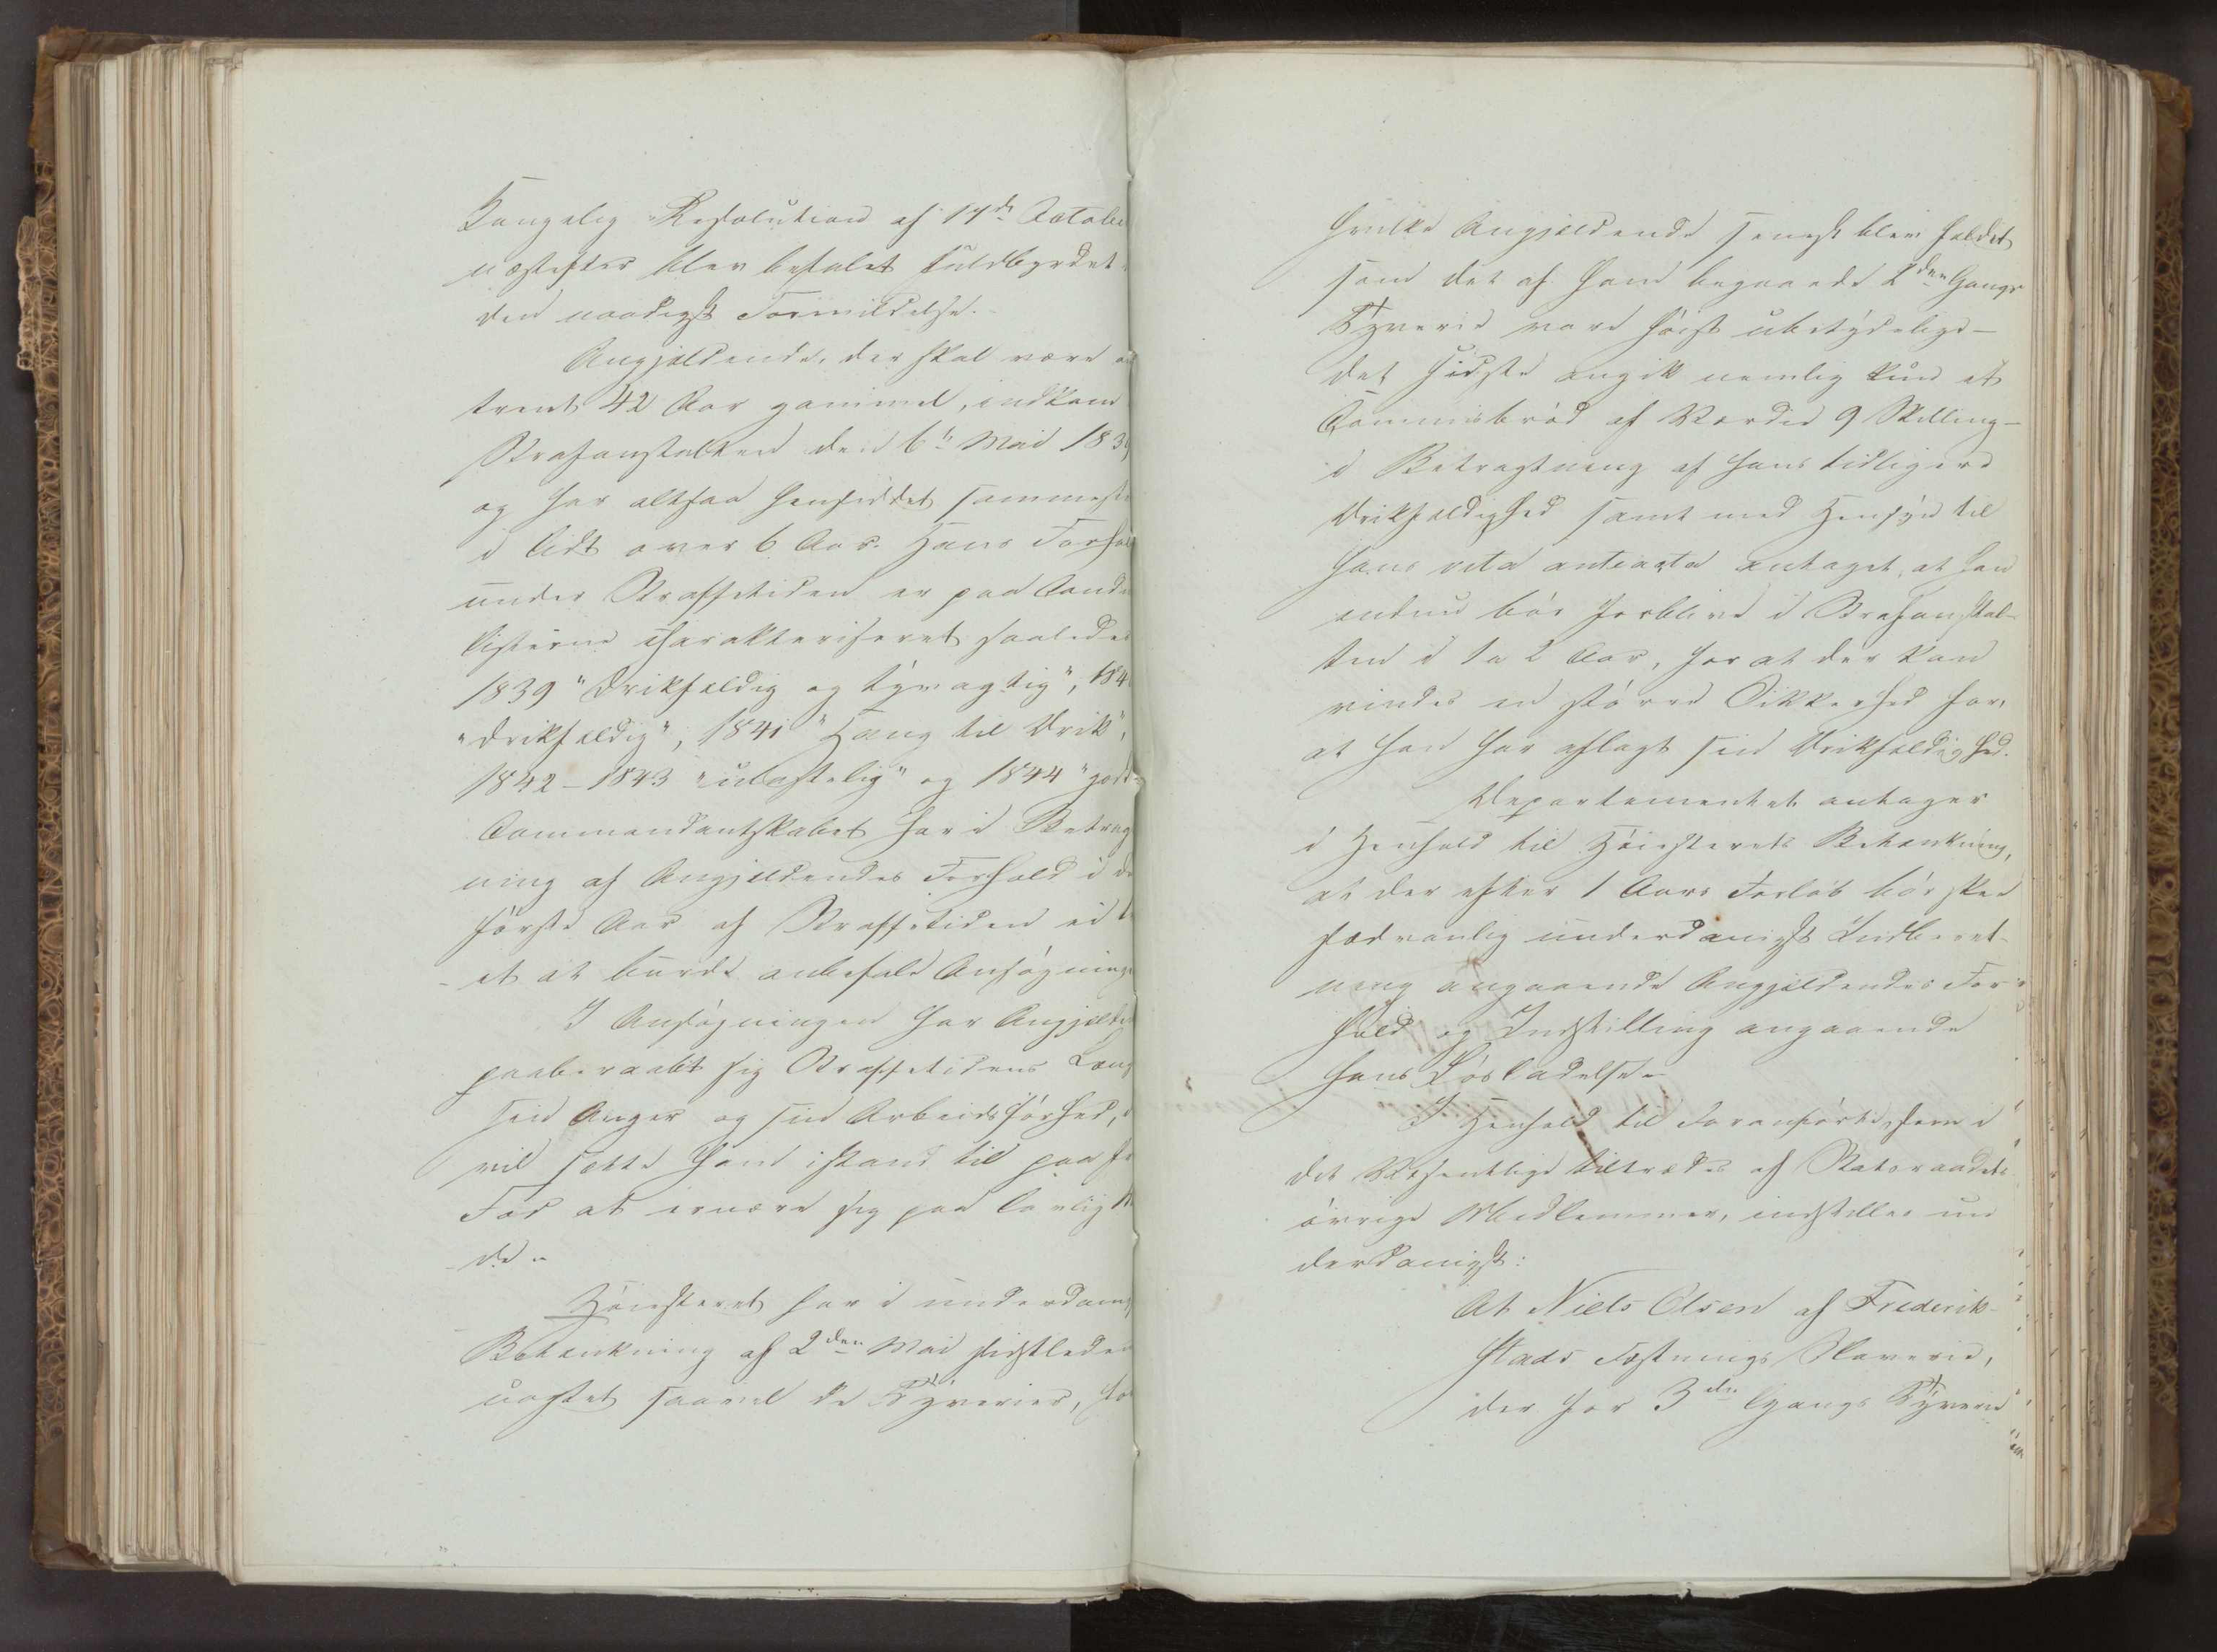 Kongelig Resolution af 17de Octobe
næstefter blev befalet fuldbyrdet
den naadigst Formildelse.
Angjældende, der skal være o
trent 42 Aar gammel, indkom
Strafanstalten den 6te Mai 1839
og har altsaa hensiddet sammest
i lidt over 6 Aar. Hans Forhol
under Straffetiden er paa Condu
listerne charakteriseret saalede
1839 "Drikfældig og tyvagtig", 184
"drikfældig", 1841 "Hang til Drik",
1842-1843 "ustadig" og 1844 "godt"
Commandantskabet har i Betragt
ning af Angjældendes Forhold i de
første Aar af Straffetiden ei 
et at burde anbefale Ansøgninge
I Ansøgningen har Angjælde
paaberaabt sig Straffetidens Læng
sin Anger og sin Arbeidsførhed,
vil sætte ham istand til paa f
Fod at ernære sig paa lovlig M
de.
Høiesteret har i underdanig
Betænkning af 2den Mai sidstleden
uagtet saavel de Tyverier, fo
hvilke Angjældende senest blev fældet
som det af ham begaaede 2den Gangs
Tyverie vare høist ubetydelige -
det sidste angik nemlig kun et
Commisbrød af Værdie 9 Skilling -
i Betragtning af hans tidligere
Drikfældighed samt med Hensyn til
hans vita anteacta antaget, at han
endnu bør forblive i Strafanstal-
ten i 1 a 2 Aar, for at der kan
vindes en større Sikkerhed for,
at han har aflagt sin Drikfældighed.
Departementet antager
i Henhold til Høiesterets Betænkning,
at der efter 1 Aars Forløb bør skee
sædvanlig underdanigst Indberet-
ning angaaende Angjældendes For-
hold og Indstilling angaaende
hans Løsladelse.
I Henhold til Foranførte, som i
det Væsentlige tiltrædes af Statsraadets
øvrige Medlemmer, indstilles un
derdanigst:
At Niels Olsen af Frederik-
stads Fæstnings Slaverie,
der for 3die Gangs Tyverie